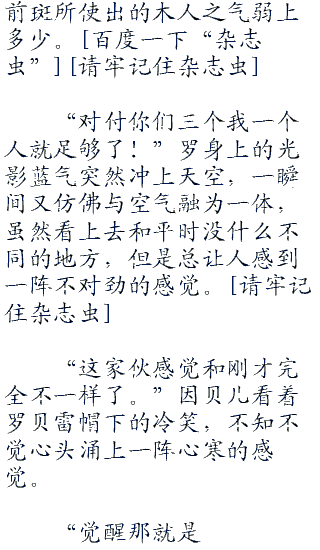 前斑所使出的木人之气弱上
多少。[百度一下“杂志
虫”][请牢记住杂志虫]
“对付你们三个我一个
人就足够了！”罗身上的光
影蓝气突然冲上天空，一瞬
间又仿佛与空气融为一体，
虽然看上去和平时没什么不
同的地方，但是总让人感到
一阵不对劲的感觉。[请牢记
住杂志虫]
“这家伙感觉和刚才完
全不一样了。”因贝儿看着
罗贝雷帽下的冷笑，不知不
觉心头涌上一阵心寒的感
觉。
“觉醒那就是